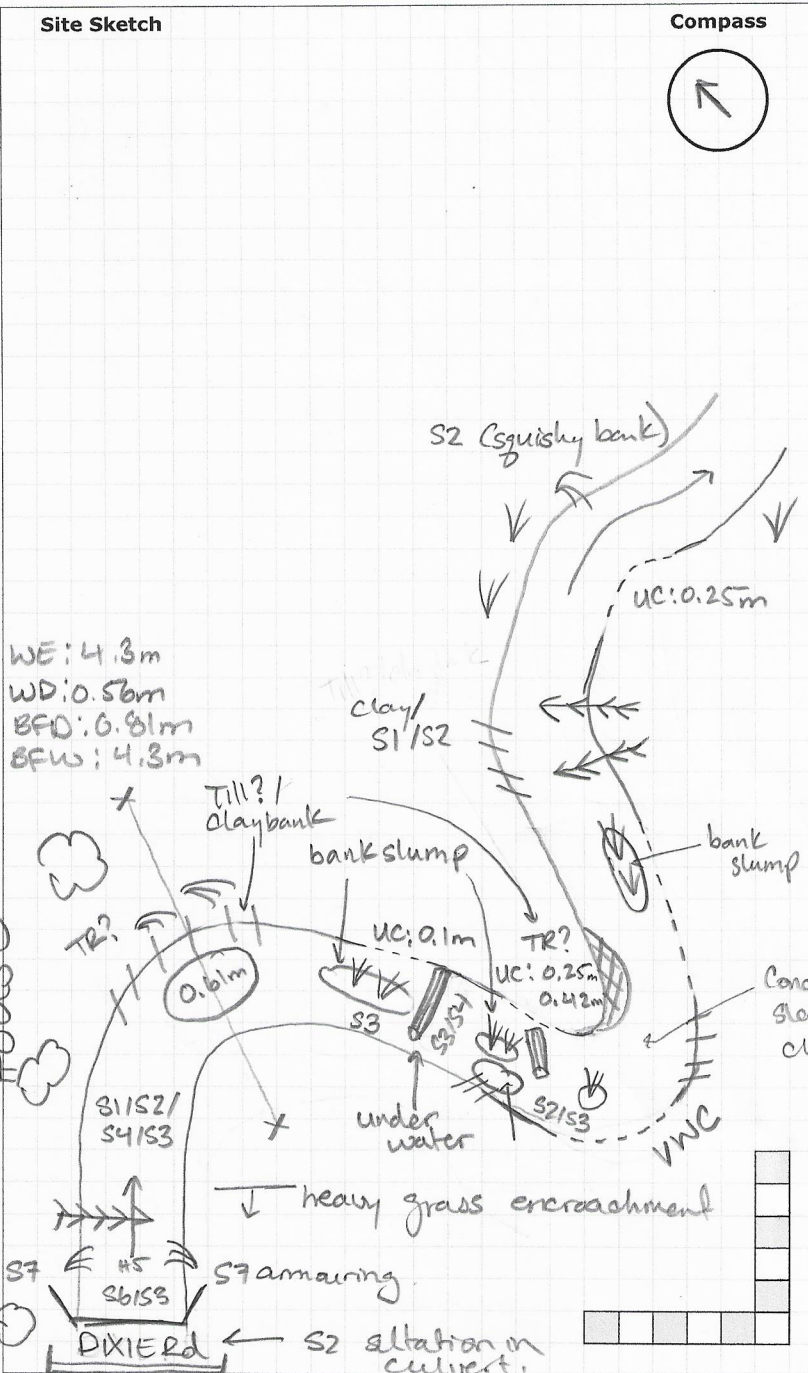 Site Sketch
Compass
S2 (squishy bank)
UC: 0.25m
WE: 4.3m
WD: 0.56m
BFD: 0.81m
BFW: 4.3m
clay/
S1/S2
Till? /
claybank
bank slump
bank
slump
TR?
UC: 0.1m
TR?
UC: 0.25m
0.42m
0.61m
S3
S3/S4
S1/S2/
S4/S3
under
water
S2/S3
VWC
heavy grass encroachment
S7
H5
S6/S3
S7 armouring
DIXIE Rd
S2 siltation in
culvert.